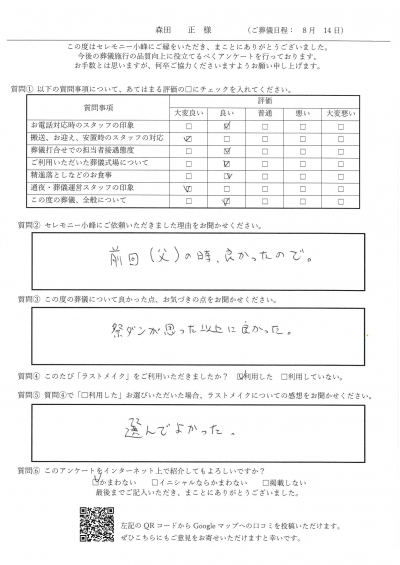 森田 正 様 (ご葬儀日程: 8月 14日)
この度はセレモニー小峰にご縁をいただき、まことにありがとうございました。
今後の葬儀施行の品質向上に役立てるべくアンケートを行っております。
お手数とは思いますが、何卒ご協力くださいますようお願い申し上げます。
質問① 以下の質問事項について、あてはまる評価の□にチェックを入れてください。
質問事項 評価
大変良い 良い 普通 悪い 大変悪い
お電話対応時のスタッフの印象 □ ☑ □ □ □
搬送、お迎え、安置時のスタッフの対応 ☑ □ □ □ □
葬儀打合せでの担当者接遇態度 □ ☑ □ □ □
ご利用いただいた葬儀式場について □ ☑ □ □ □
精進落としなどのお食事 □ ☑ □ □ □
通夜・葬儀運営スタッフの印象 ☑ □ □ □ □
この度の葬儀、全般について □ ☑ □ □ □
質問② セレモニー小峰にご依頼いただきました理由をお聞かせください。
前回(父)の時、良かったので。
質問③ この度の葬儀について良かった点、お気づきの点をお聞かせください。
祭ダンが思った以上に良かった。
質問④ このたび「ラストメイク」をご利用いただきましたか? ☑利用した □利用していない。
質問⑤ 質問④で「□利用した」お選びいただいた場合、ラストメイクについての感想をお聞かせください。
選んでよかった。
質問⑥ このアンケートをインターネット上で紹介してもよろしいですか?
☑かまわない □イニシャルならかまわない □掲載しない
最後までご記入いただき、まことにありがとうございました。
左記のQRコードからGoogleマップへの口コミを投稿いただけます。
ぜひこちらにもご意見をお寄せいただけますと幸いです。